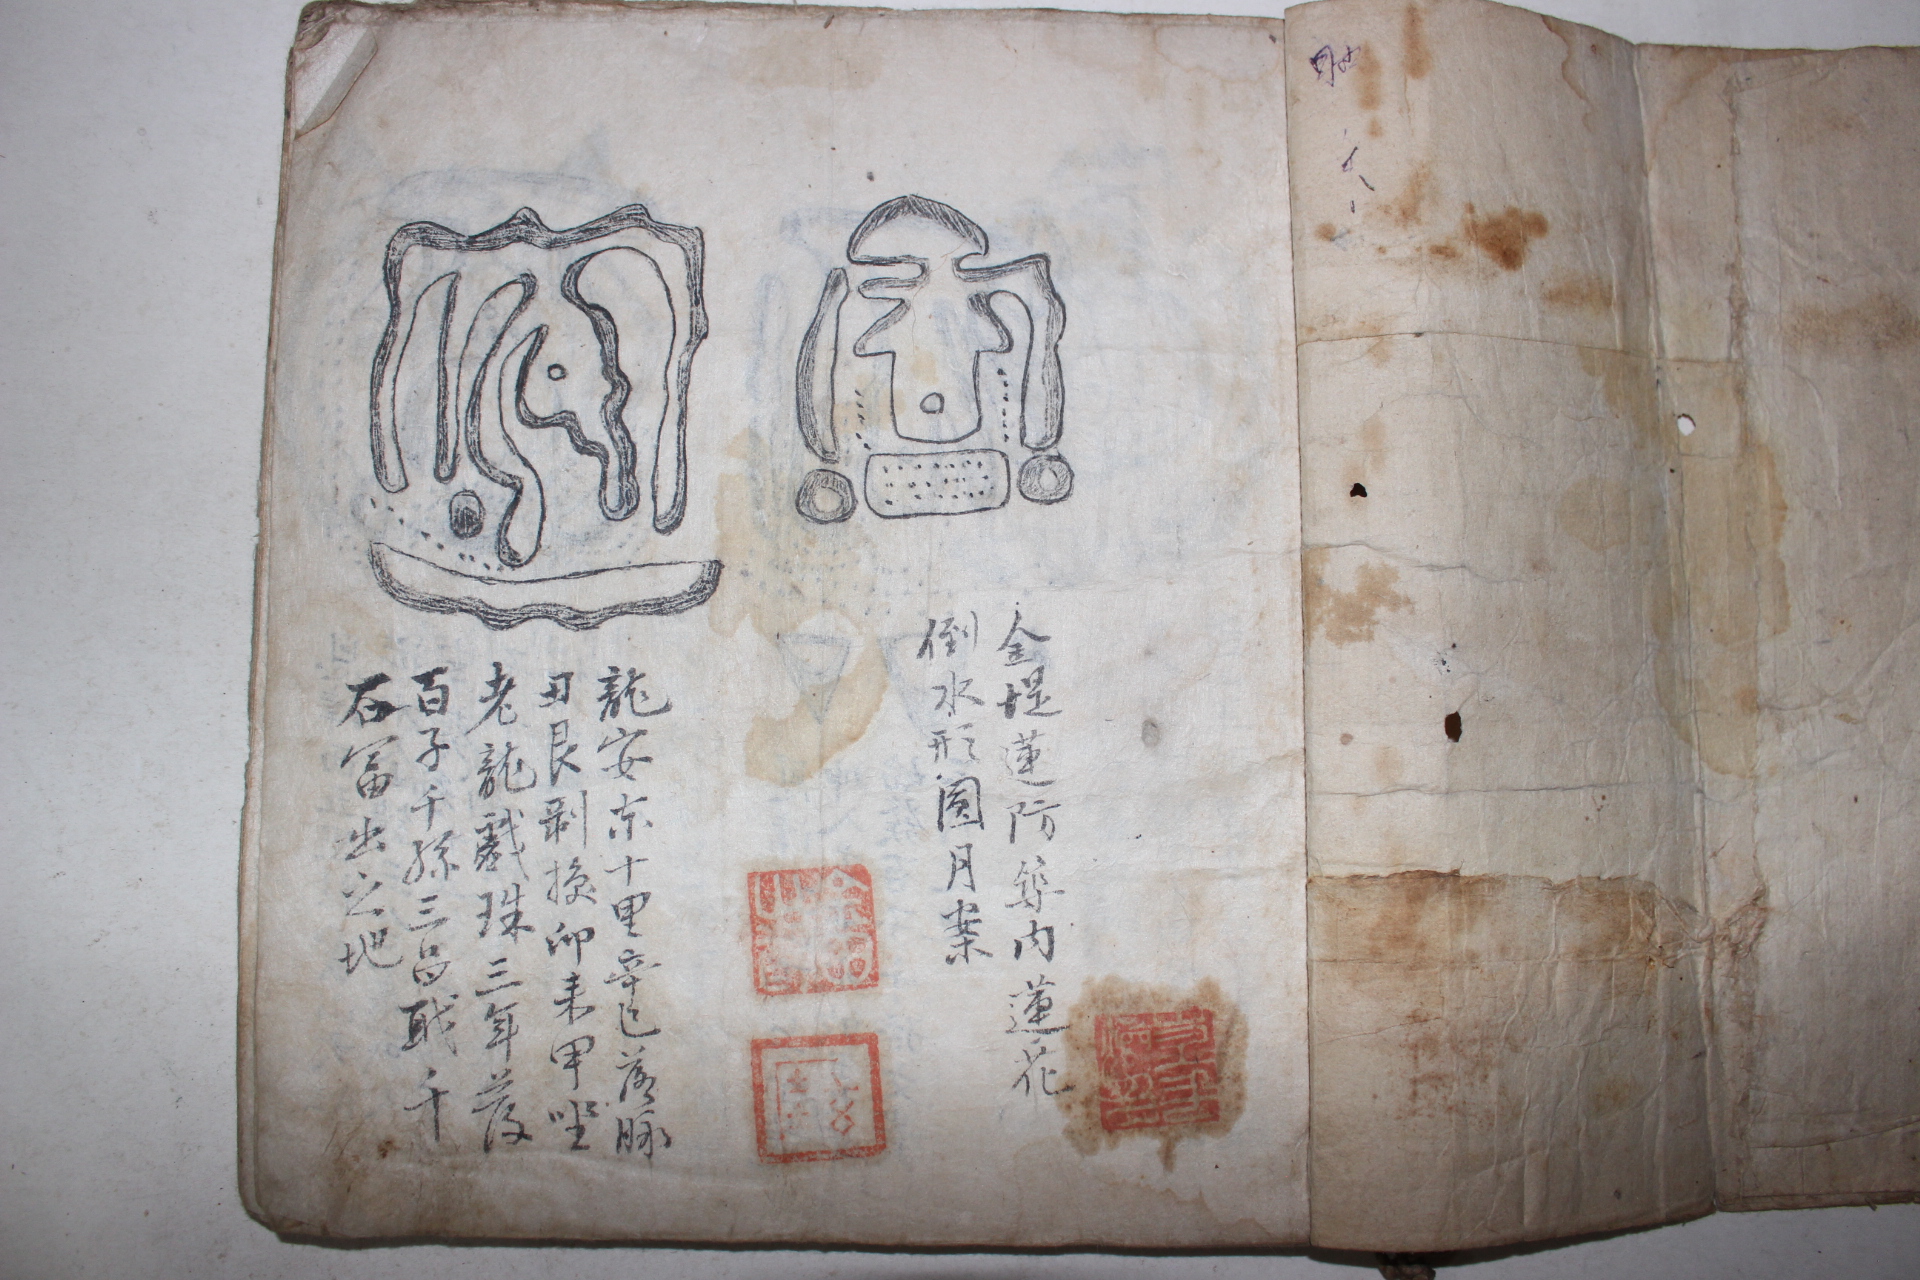 金堤蓮防築内蓮花
倒水形圓月案
龍安东十里辛巳落脉
丑艮剥換卯来甲坐
老龍戱珠三年發
百子千孫三昌
千
石冨出之地